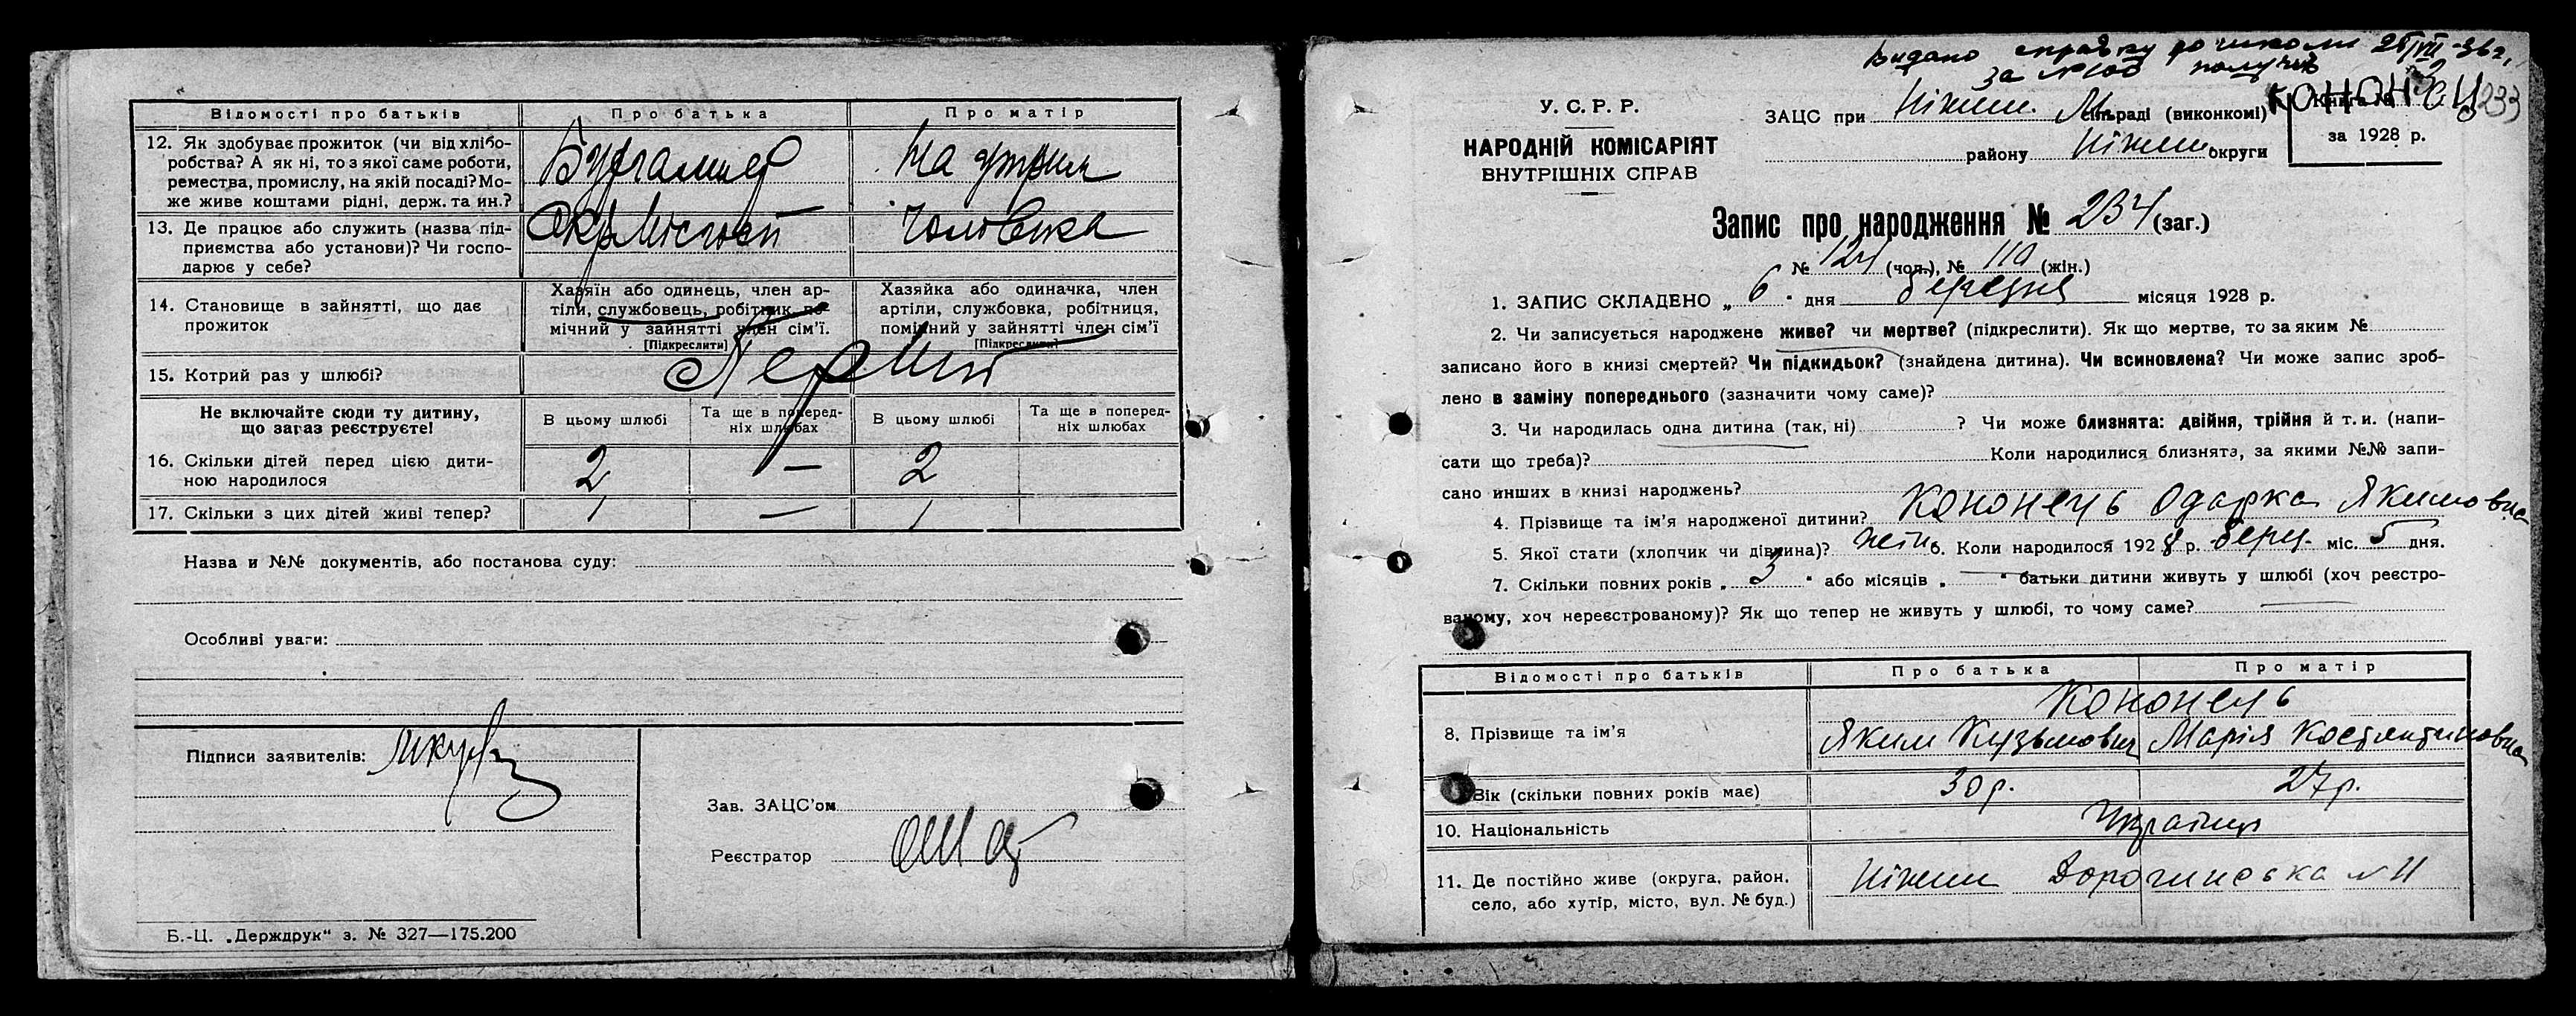 Відомості про батьків
Про батька
Про матір
12. Як здобуває прожиток (чи від хлібо-
робства? А як ні, то з якої саме роботи,
ремества, промислу, на якій посаді? Мо-
же живе коштами рідні, держ. та ин.?
Бухгалтер
На утрим
13. Де працює або служить (назва під-
приємства або установи)? Чи госпо-
дарює у себе?
чоловіка
14. Становище в зайнятті, що дає
прожиток
Хазяїн або одинець, член ар-
тіли, службовець, робітник, по-
мічний у зайнятті член сім'ї.
[Підкреслити]
Хазяйка або одиначка, член
артіли, службовка, робітниця,
помічний у зайнятті член сім'ї
[Підкреслити]
15. Котрий раз у шлюбі?
Перший
Не включайте сюди ту дитину,
що зараз реєструєте!
В цьому шлюбі
Та ще в поперед-
ніх шлюбах
В цьому шлюбі
Та ще в поперед-
ніх шлюбах
16. Скільки дітей перед цією дити-
ною народилося
2 — 2
17. Скільки з цих дітей живі тепер?
1 — 1
Назва и №№ документів, або постанова суду:
Особливі уваги:
Підписи заявителів:
Зав. ЗАЦС'ом
Реєстратор
Б.-Ц. „Держдрук“ з. № 327—175.200
Видано справку до школи 25/VII-36 г.
за №
КОНОН
233
У. С. Р. Р.
НАРОДНІЙ КОМІСАРІЯТ
ВНУТРІШНІХ СПРАВ
ЗАЦС при Ніжин М. сільраді (виконкомі)
району Ніжин округи
Книга №
за 1928 р.
Запис про народження № 234 (заг.)
№ 124 (чол.), № 110 (жін.)
1. ЗАПИС СКЛАДЕНО „ 6 “ дня березня місяця 1928 р.
2. Чи записується народжене живе? чи мертве? (підкреслити). Як що мертве, то за яким №
записано його в книзі смертей? Чи підкидьок? (знайдена дитина). Чи всиновлена? Чи може запис зроб-
лено в заміну попереднього (зазначити чому саме)?
3. Чи народилась одна дитина (так, ні) ? Чи може близнята: двійня, трійня й т. и. (напи-
сати що треба)? Коли народилися близнята, за якими №№ запи-
сано инших в книзі народжень?
4. Прізвище та ім'я народженої дитини? Кононець Одарка Якимовна
5. Якої стати (хлопчик чи дівчина)? жін 6. Коли народилося 1928 р. берез. міс. 5 дня.
7. Скільки повних років „ 3 “ або місяців „ “ батьки дитини живуть у шлюбі (хоч реєстро-
ваному, хоч нереєстрованому)? Як що тепер не живуть у шлюбі, то чому саме?
Відомості про батьків
Про батька
Про матір
8. Прізвище та ім'я
Кононець
Яким Кузьмович
Марія Костянтиновна
Вік (скільки повних років має)
30 р.
27 р.
10. Національність
Українці
11. Де постійно живе (округа, район,
село, або хутір, місто, вул. № буд.)
Ніжин